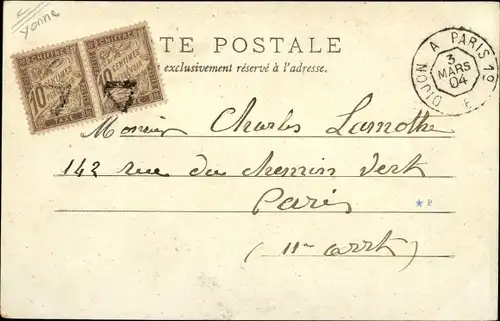 Yonne
CHIFFRE CHIFFRE
10 CENTIMES 10 CENTIMES
TAXE
TE POSTALE
exclusivement réservé à l'adresse.
DIJON A PARIS 1º
3
MARS
04
E
Monsieur Charles Lamothe
142 rue du chemin Vert
Paris
(11e arrt)